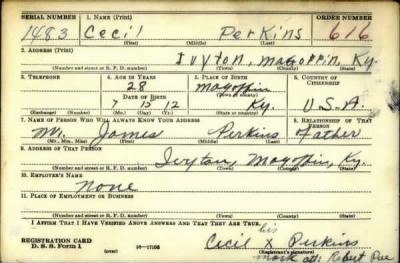 SERIAL NUMBER 1. NAME (Print) ORDER NUMBER
1483 Cecil Perkins 616
(First) (Middle) (Last)
2. ADDRESS (Print)
Ivyton, Magoffin, Ky.
(Number and street or R. F. D. number) (Town) (County) (State)
3. TELEPHONE 4. AGE IN YEARS 5. PLACE OF BIRTH 6. COUNTRY OF CITIZENSHIP
28 Magoffin
DATE OF BIRTH (Town or county)
7 15 12 Ky. U.S.A.
(Exchange) (Number) (Mo.) (Day) (Yr.) (State or country)
7. NAME OF PERSON WHO WILL ALWAYS KNOW YOUR ADDRESS 8. RELATIONSHIP OF THAT PERSON
Mr. James Perkins Father
(Mr., Mrs., Miss) (First) (Middle) (Last)
9. ADDRESS OF THAT PERSON
Ivyton, Magoffin, Ky.
(Number and street or R. F. D. number) (Town) (County) (State)
10. EMPLOYER'S NAME
None
11. PLACE OF EMPLOYMENT OR BUSINESS
(Number and street or R. F. D. number) (Town) (County) (State)
I AFFIRM THAT I HAVE VERIFIED ABOVE ANSWERS AND THAT THEY ARE TRUE.
his
REGISTRATION CARD Cecil X Perkins
D. S. S. Form 1 (Registrant's signature)
mark att: Robert